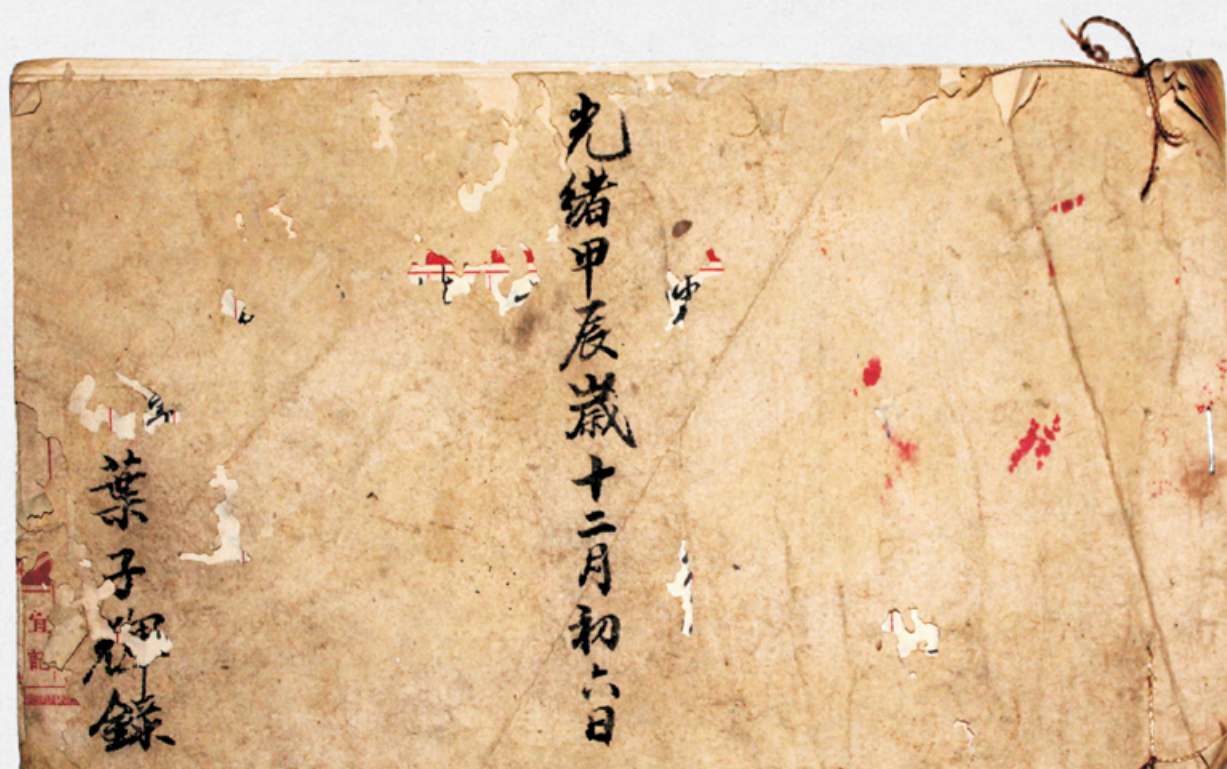 光緒甲辰歲十二月初六日
葉子 錄
宜記